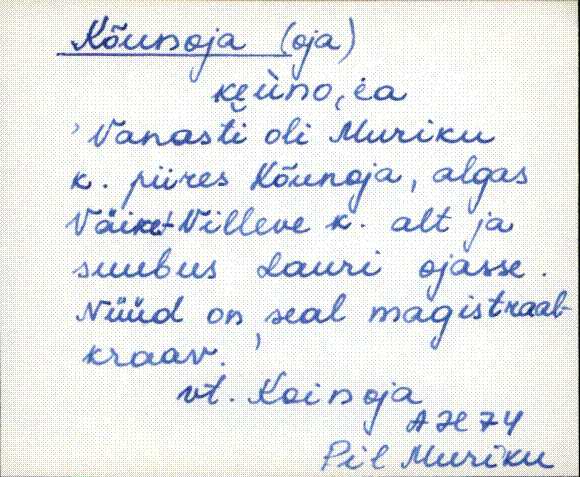 Kõunoja (oja)
'Vanasti oli Muriku
k. piires Kõunoja, algas
Väike-Villeve k. alt ja
suubus Lauri ojasse.
Nüüd on seal magistraal-
kraav.'
vt. Koinoja
AH 74
Pil Muriku